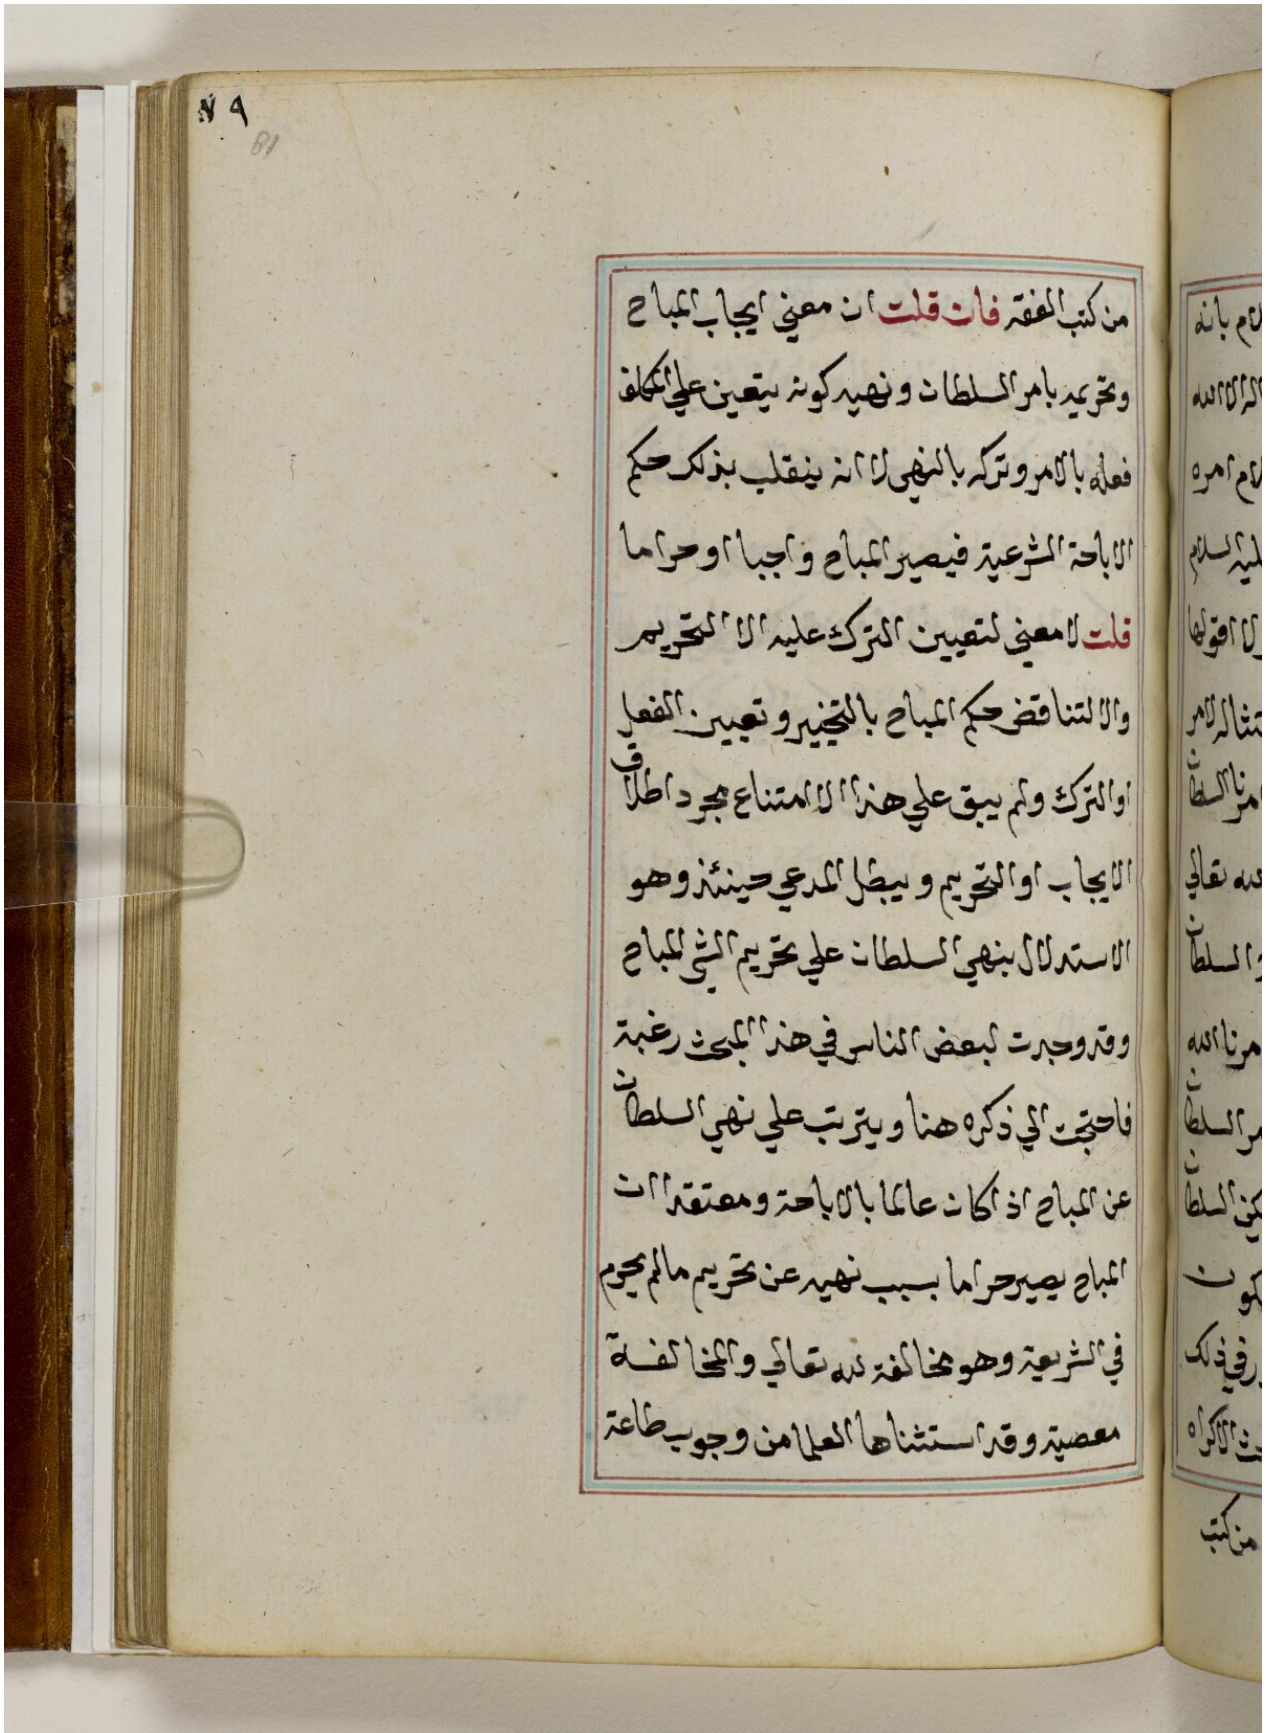 ٧٩
81
من كتب الفقه فان قلت ان معني ايجاب المباح
وتحريمه بامر السلطان ونهيه كونه يتعين علي المكلف
فعله بالامر وتركه بالنهي لا انه ينقلب بذلك حكم
الاباحة الشرعية فيصير المباح واجبا او حراما
قلت لا معني لتعيين الترك عليه الا التحريم
والا لتناقض حكم المباح بالتخيير وتعيين الفعل
او الترك ولم يبق علي هذا الا امتناع مجرد اطلاق
الايجاب او التحريم ويبطل المدعي حينئذ وهو
الاستدلال بنهي السلطان علي تحريم الشي المباح
وقد وجدت لبعض الناس في هذا المبحث رغبة
فاحتجت الي ذكره هنا ويترتب علي نهي السلطان
عن المباح اذا كان عالما بالاباحة ومعتقدا ان
المباح يصير حراما بسبب نهيه عن تحريم مالم يحرم
في الشريعة وهو مخالفة لله تعالي والمخالفة
معصية وقد استثناها العلما من وجوب طاعة
بانه
الا الله
امره
السلام
لا اقولها
لامر
السلطان
تعالي
السلطان
الله
السلطان
السلطان
في ذلك
الاكراه
من كتب